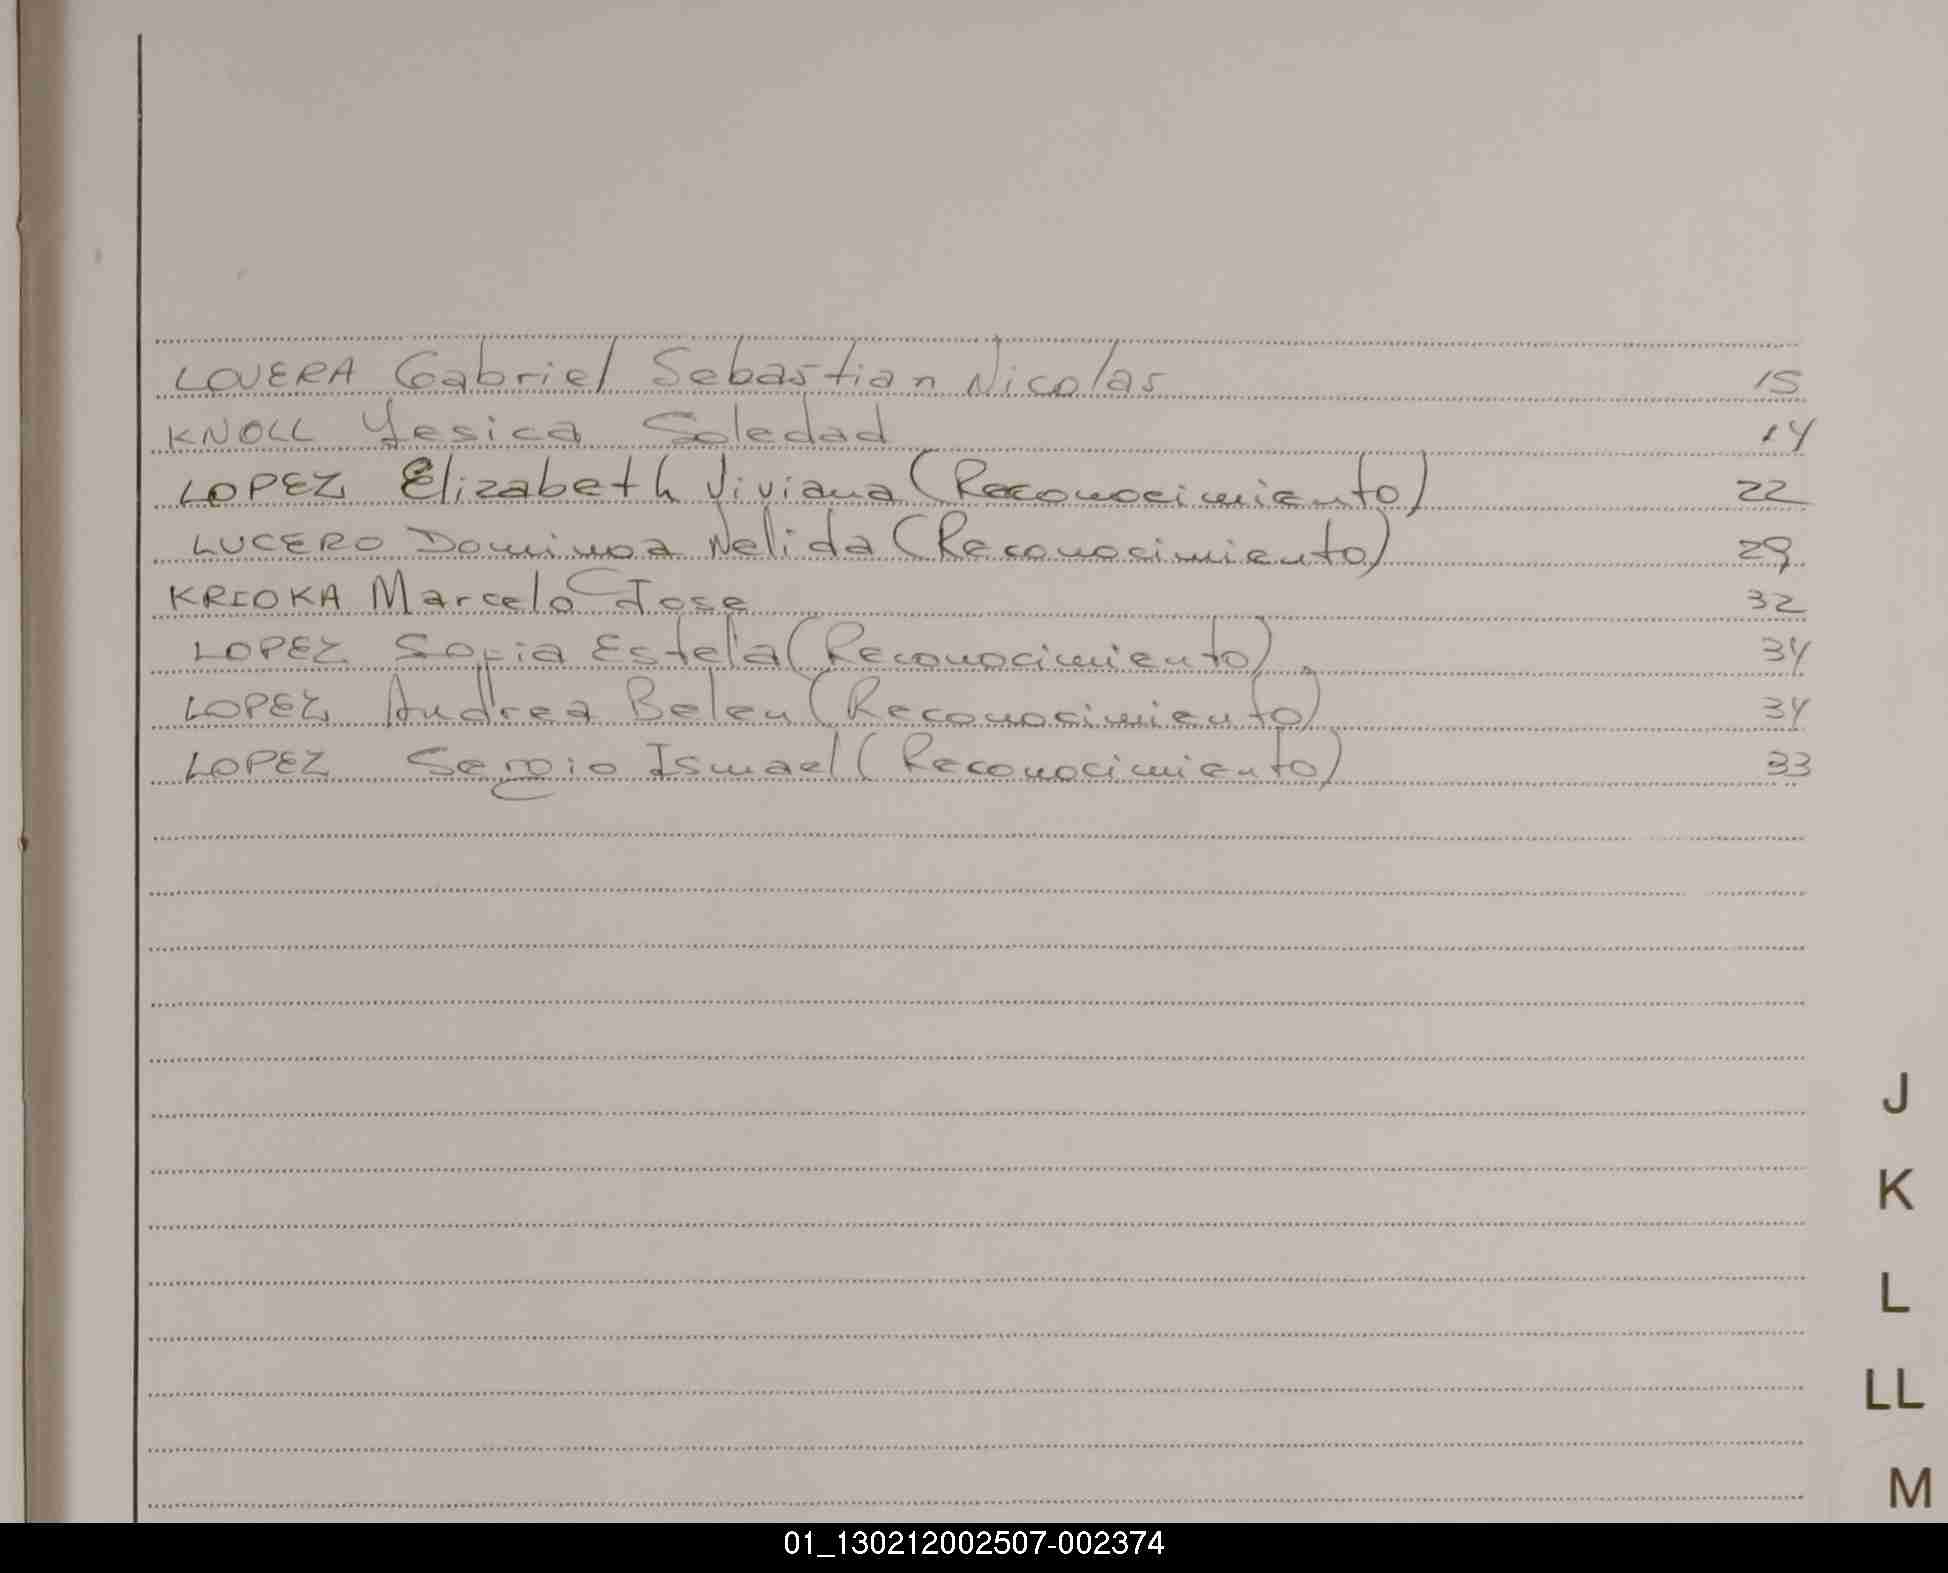 LOVERA Gabriel Sebastian Nicolas 15
KNOLL Yesica Soledad 14
LOPEZ Elizabeth Viviana (Reconocimiento) 22
LUCERO Dominga Nelida (Reconocimiento) 29
KRIOKA Marcelo Jose 32
LOPEZ Sofia Estela (Reconocimiento) 34
LOPEZ Andrea Belen (Reconocimiento) 34
LOPEZ Sergio Ismael (Reconocimiento) 33
J
K
L
LL
M
01_130212002507-002374